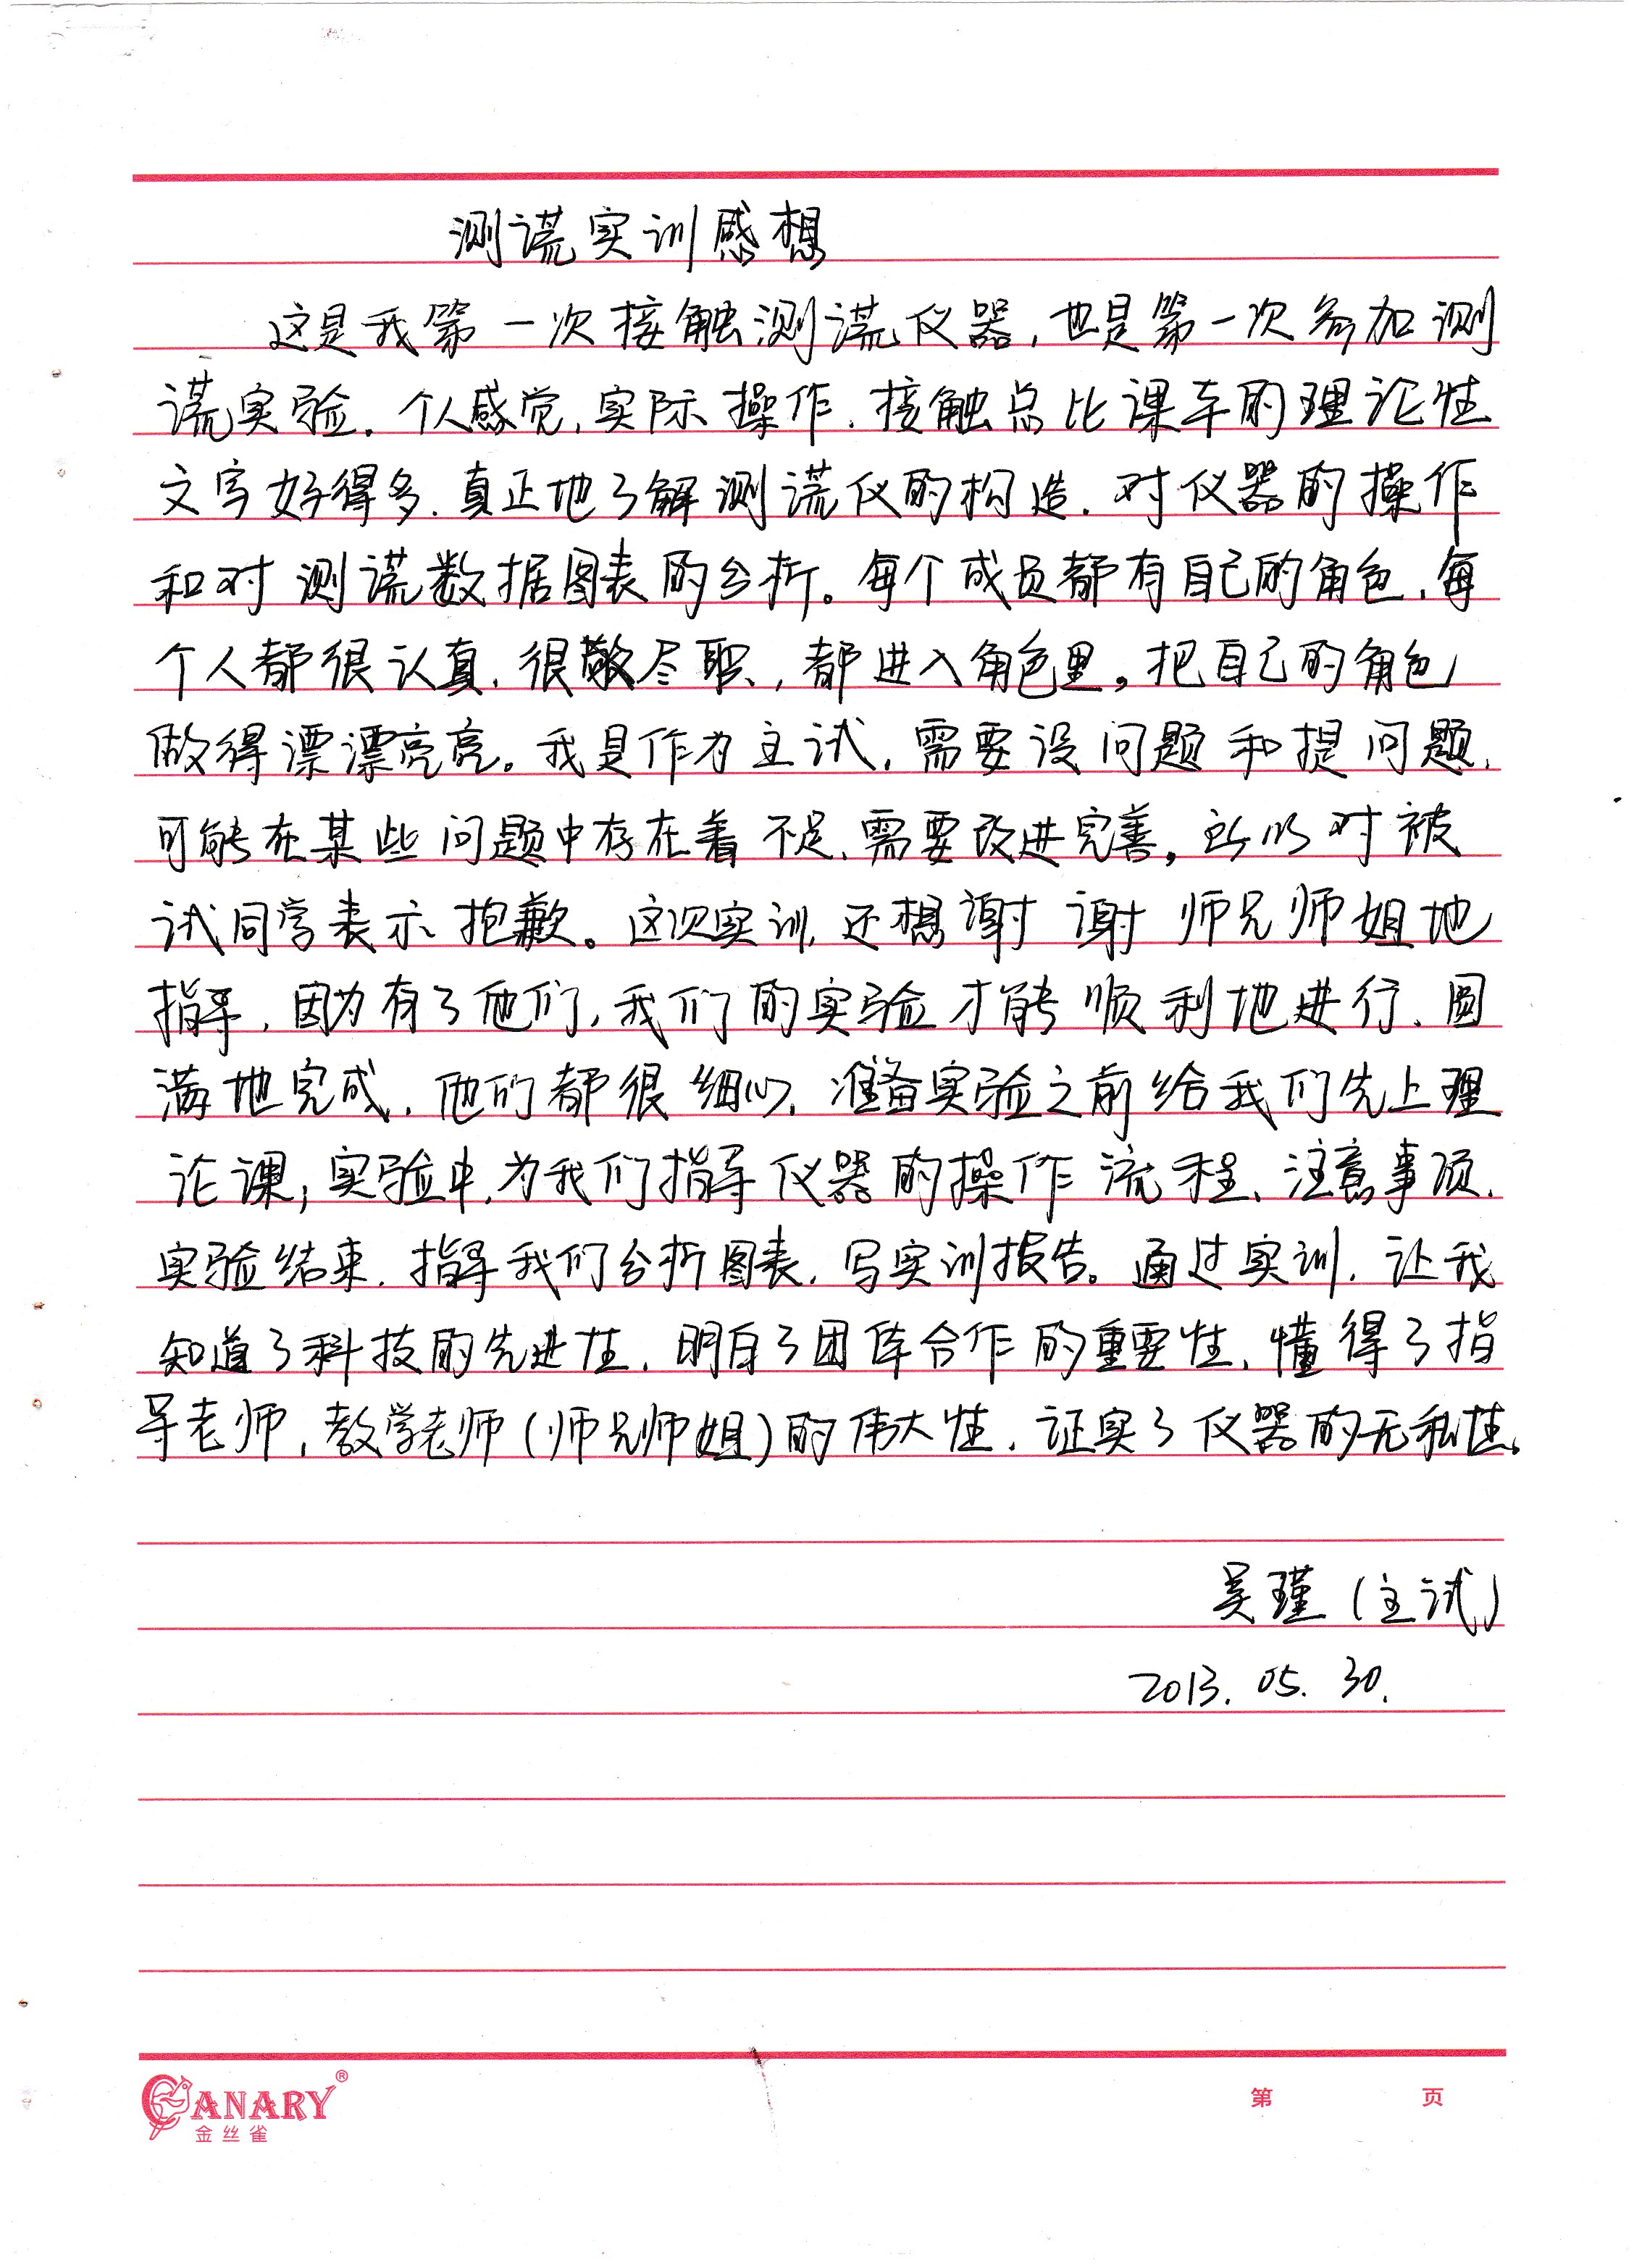 测谎实训感想
这是我第一次接触测谎仪器,也是第一次参加测
谎实验。个人感觉,实际操作、接触总比课本的理论性
文字好得多,真正地了解测谎仪的构造,对仪器的操作
和对测谎数据图表的分析。每个成员都有自己的角色,每
个人都很认真,很敬尽职,都进入角色里,把自己的角色
做得漂漂亮亮。我是作为主试,需要设问题和提问题,
可能在某些问题中存在着不足,需要改进完善,所以对被
试同学表示抱歉。这次实训,还想谢谢师兄师姐地
指导,因为有了他们,我们的实验才能顺利地进行、圆
满地完成,他们都很细心,准备实验之前给我们先上理
论课,实验中,为我们指导仪器的操作流程、注意事项,
实验结束,指导我们分析图表,写实训报告。通过实训,让我
知道了科技的先进性,明白了团体合作的重要性,懂得了指
导老师,教学老师(师兄师姐)的伟大性,证实了仪器的无私性。
吴瑾(主试)
2013.05.30.
CANARY®
金丝雀
第 页